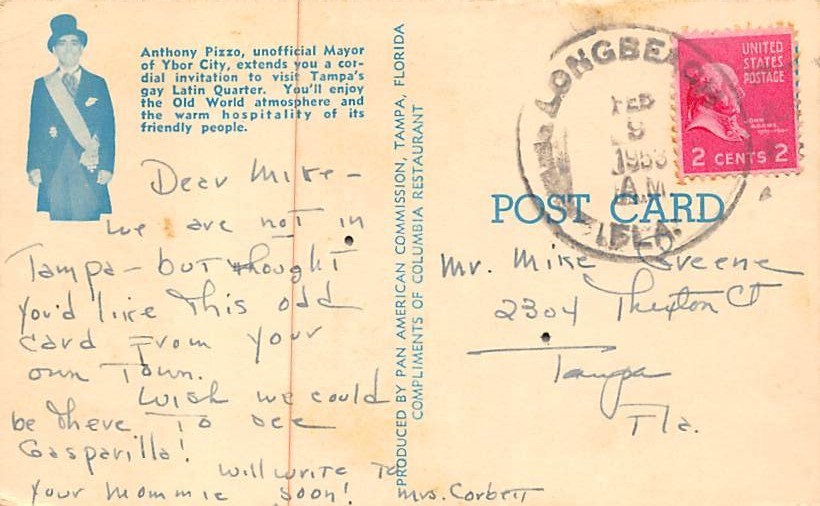 Anthony Pizzo, unofficial Mayor
of Ybor City, extends you a cor-
dial invitation to visit Tampa's
gay Latin Quarter. You'll enjoy
the Old World atmosphere and
the warm hospitality of its
friendly people.
Dear Mike -
We are not in
Tampa - but thought
you'd like this odd
card from your
own town.
Wish we could
be there to see
Gasparilla!
Will write to
your Mommie soon! Mrs. Corbett
PRODUCED BY PAN AMERICAN COMMISSION, TAMPA, FLORIDA
COMPLIMENTS OF COLUMBIA RESTAURANT
LONGBEACH
FEB
9
1953
AM
FLA.
UNITED
STATES
POSTAGE
JOHN
ADAMS
2 CENTS 2
POST CARD
Mr. Mike Greene
2304 Court
Tampa
Fla.